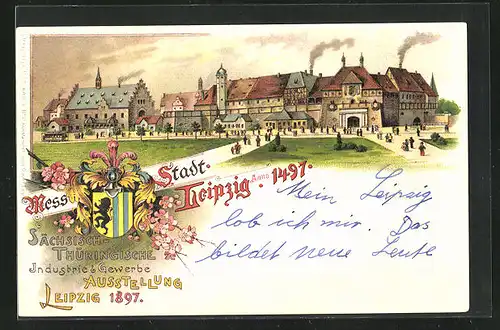 Mess Stadt.
Leipzig. Anno 1497.
SÄCHSISCH-
THÜRINGISCHE
Industrie & Gewerbe
AUSSTELLUNG
LEIPZIG 1897.
Mein Leipzig
lob ich mir. Das
bildet neue Leute